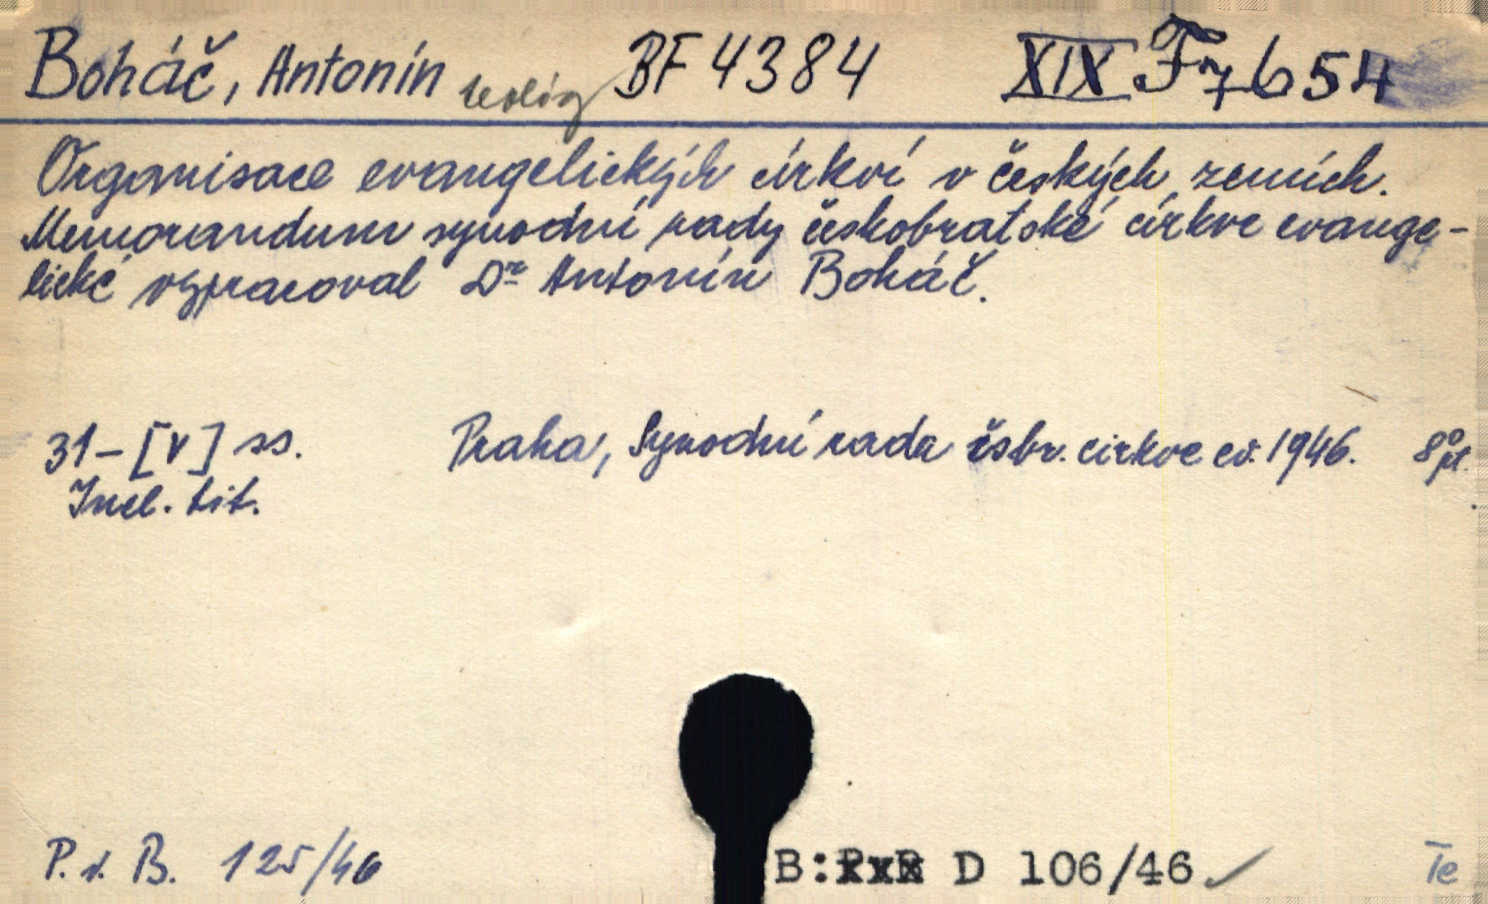 Boháč, Antonín teolog BF 4384 XIX F 7654
Organisace evangelických církví v českých zemích.
Memorandum synodní rady českobratské církve evange-
lické vypracoval Dr Antonín Boháč.
31-[V] ss. Praha, Synodní rada čsbr. cirkve ev. 1946. 8° pl.
Incl. tit.
P. v. B. 125/46 B: D 106/46 ✓ Te